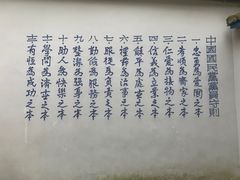 中國國民黨黨員守則
一、忠勇為愛國之本
二、孝順為齊家之本
三、仁愛為接物之本
四、信義為立業之本
五、和平為處世之本
六、禮節為治事之本
七、服從為負責之本
八、勤儉為服務之本
九、整潔為強身之本
十、助人為快樂之本
十一、學問為濟世之本
十二、有恆為成功之本